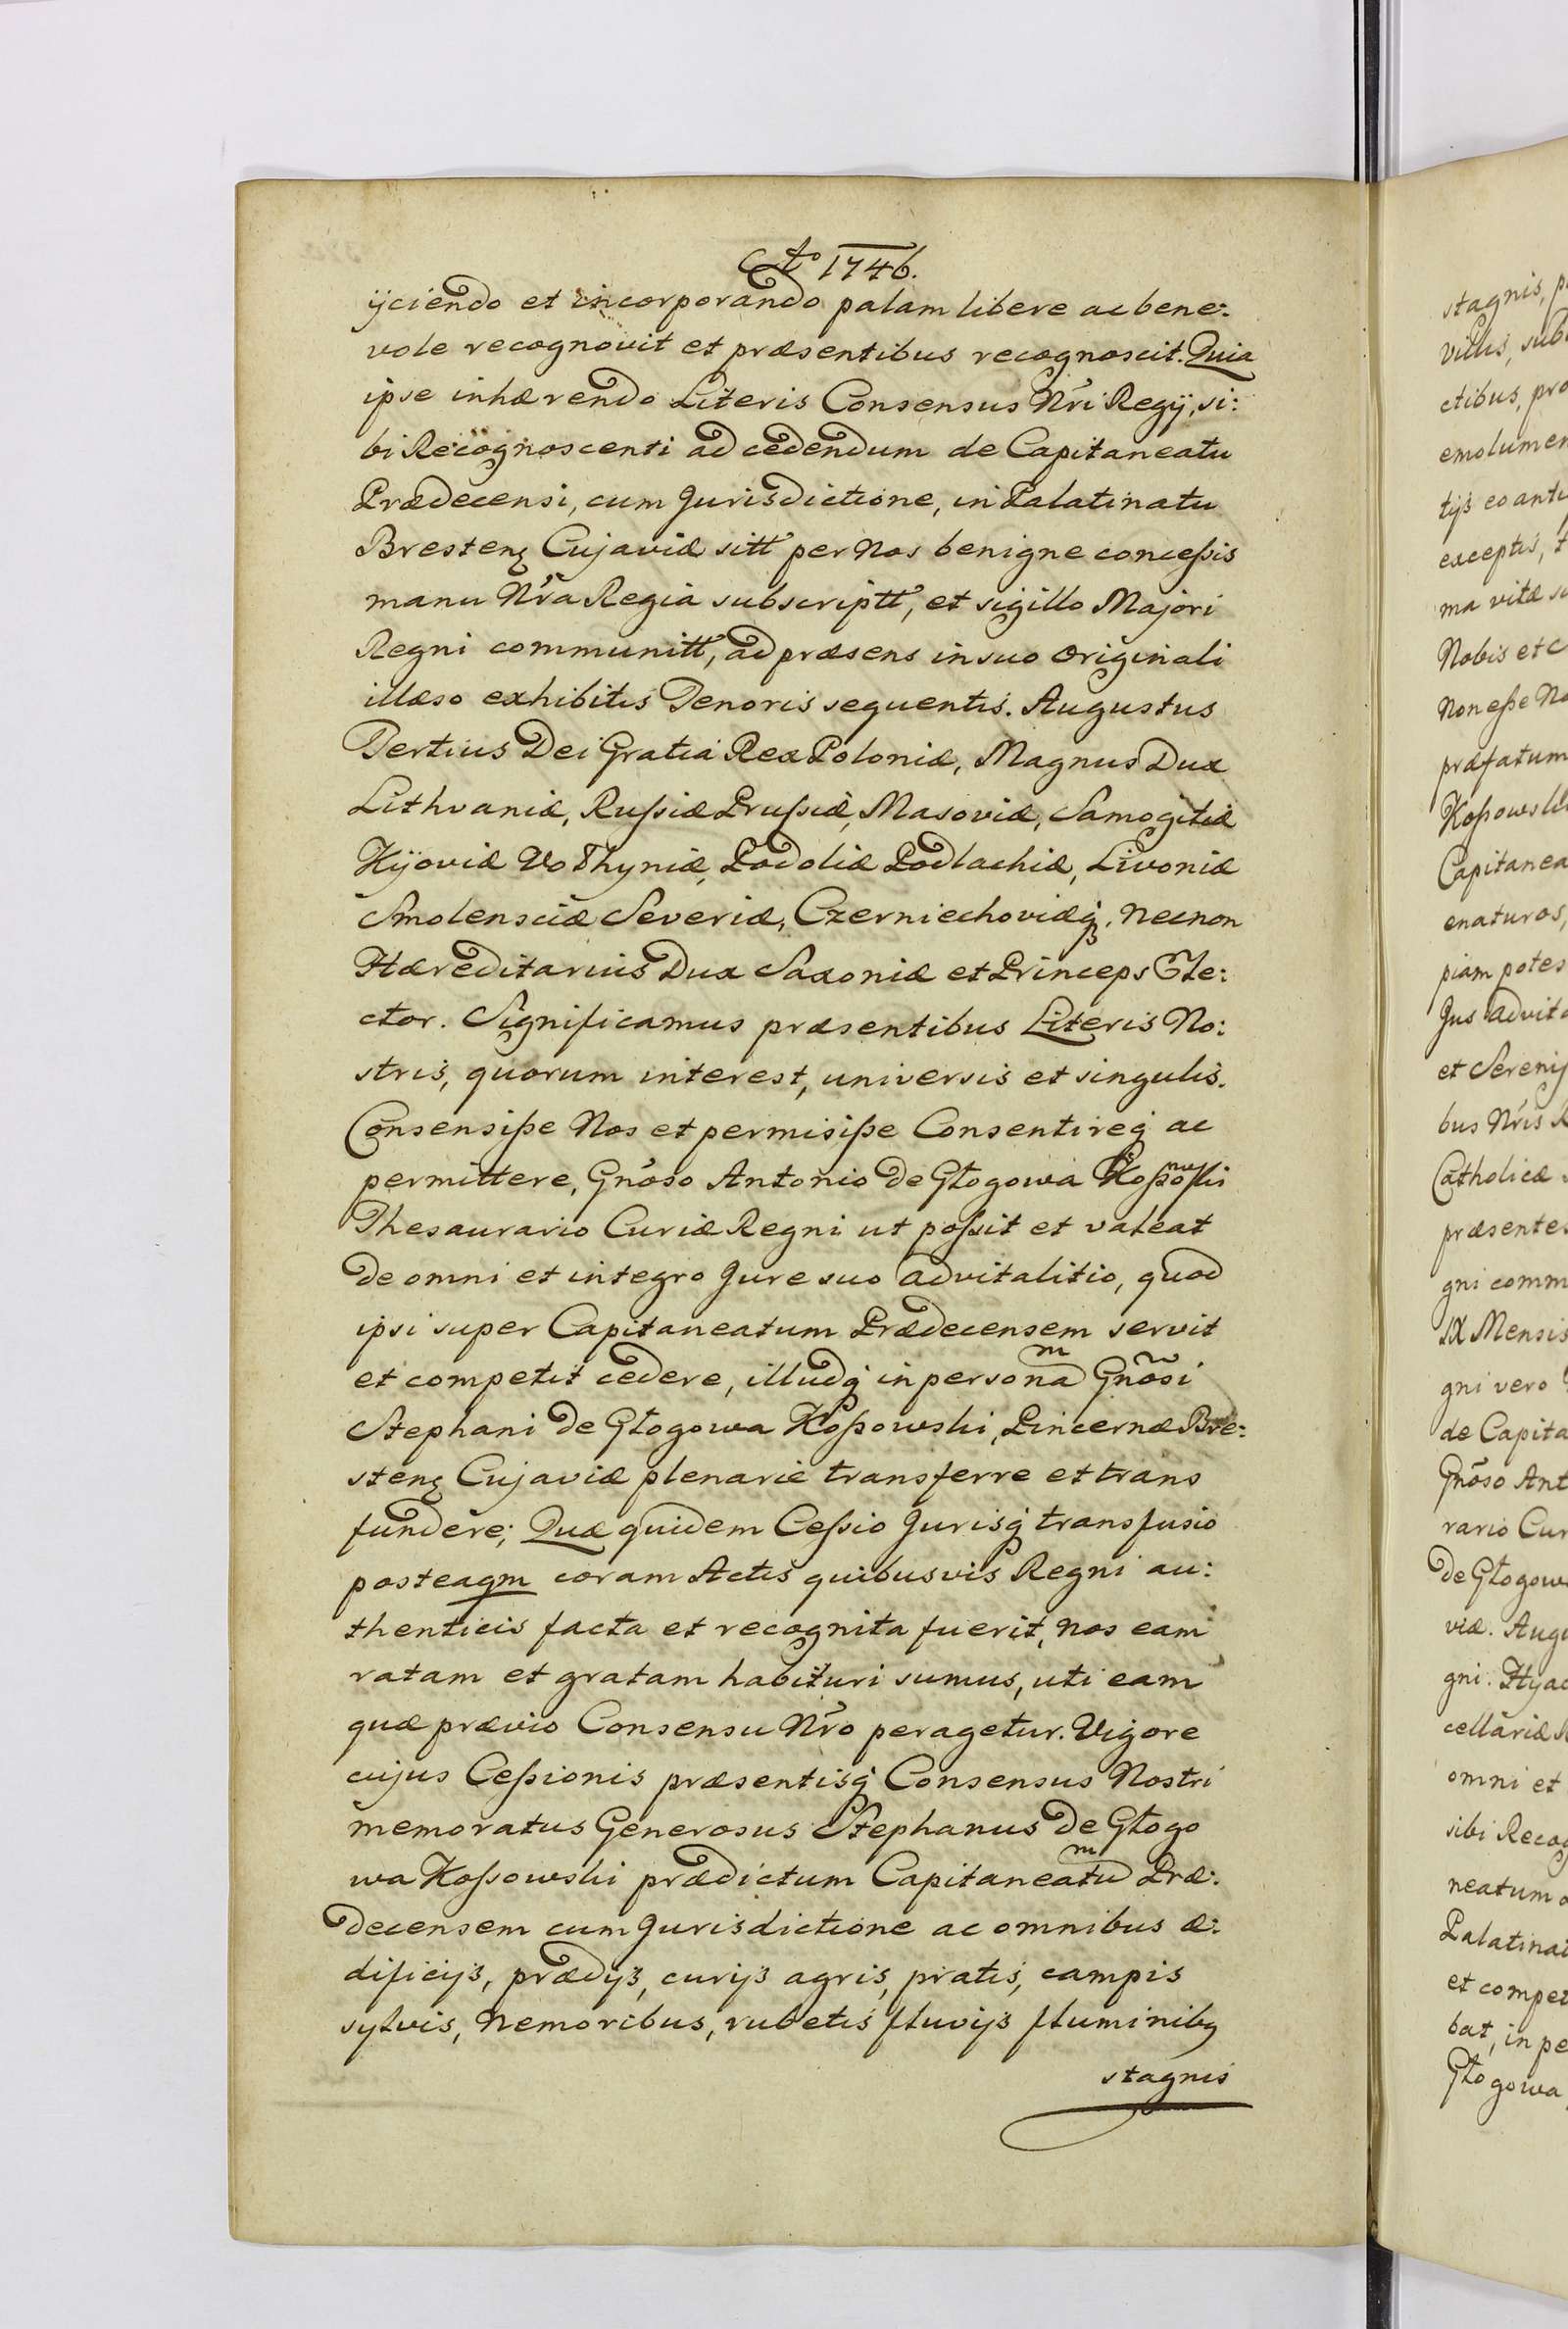 Aō 1746.
ijciendo et incorporando palam libere ac bene:
vole recognovit et præsentibus recognoscit. Quia
ipse inhærendo Literis Consensus Nri Regij, si:
bi Recognoscenti ad cedendum de Capitaneatu
Prædecensi, cum Jurisdictione, in Palatinatu
Brestenȩ Cujaviæ sitt per Nos benigne concessis
manu Nra Regia subscriptt, et sigillo Majori
Regni communitt, ad præsens in suo Originali
illæso exhibitis Tenoris sequentis. Augustus
Tertius Dei Gratia Rex Poloniæ, Magnus Dux
Lithvaniæ, Russiæ Prussiæ, Masoviæ, Samogitiæ
Kijoviæ Volhyniæ, Podoliæ Podlachiæ, Livoniæ
Smolensciæ Severiæ, Czerniechoviæq, necnon
Hæreditarius Dux Saxoniæ et Princeps Ele:
ctor. Significamus præsentibus Literis No:
stris, quorum interest, universis et singulis.
Consensisse Nos et permisisse Consentireq ac
permittere, Gnoso Antonio de Głogowa Kossowski
Thesaurario Curiæ Regni ut possit et valeat
de omni et integro Jure suo advitalitio, quod
ipsi super Capitaneatum Prædecensem servit
et competit cedere, illudq in personam Gnosi
Stephani de Głogowa Kossowski, Pincernæ Bre:
stenȩ Cujaviæ plenarie transferre et trans
fundere; Quæ quidem Cessio Jurisq transfusio
posteaqm coram Actis quibusvis Regni au:
thenticis facta et recognita fuerit, nos eam
ratam et gratam habituri sumus, uti eam
quæ prævio Consensu Nro peragetur. Vigore
cujus Cessionis præsentisq Consensus Nostri
memoratus Generosus Stephanus de Głogo
wa Kossowski prædictum Capitaneatum Præ:
decensem cum Jurisdictione ac omnibus æ:
dificijs, prædijs, curijs agris, pratis, campis
sylvis, Nemoribus, rubetis fluvijs fluminibq
stagnis
stagnis,
villis,
ctibus,
emolumen
tijs eo anti
exceptis,
ma vitæ
Nobis et
Non esse
præfatum
Kossowski
Capitanea
enaturos,
piam potes
Jus advit
et Sereniss
bus Nris
Catholicæ
præsentes
gni comm
IX Mensis
gni vero
de Capita
Gnoso Ant
rario Cur
de Głogow
viæ. Augu
gni. Hyac
cellariæ
omni et
sibi Recog
neatum
Palatinat
et compet
bat, in pe
Głogowa